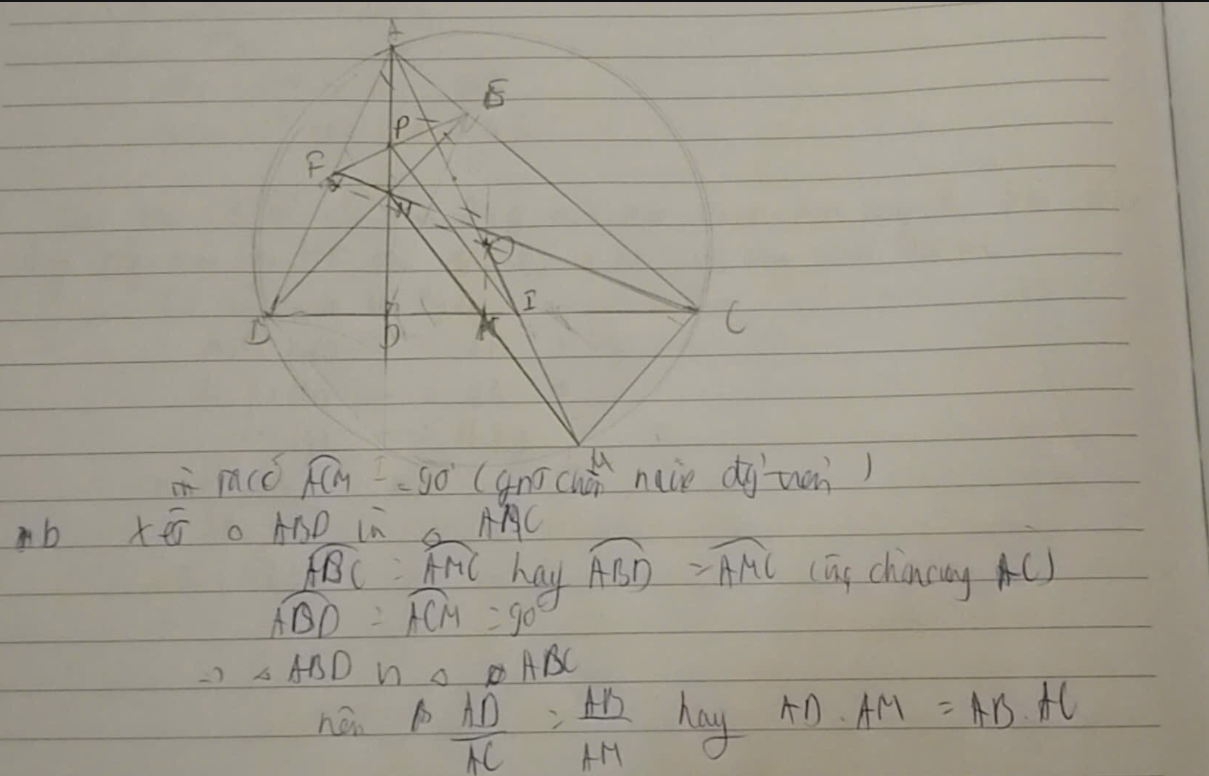 A
E
P
F
H
O
D
D
K
I
C
M
ta có ACM = 90° (góc nội tiếp chắn nửa đường tròn)
b Xét △ ABD và △ AMC
ABC = AMC hay ABD = AMC (cùng chắn cung AC)
ABD = ACM = 90°
=> △ ABD ~ △ ABC
nên AD/AC = AB/AM hay AD . AM = AB . AC